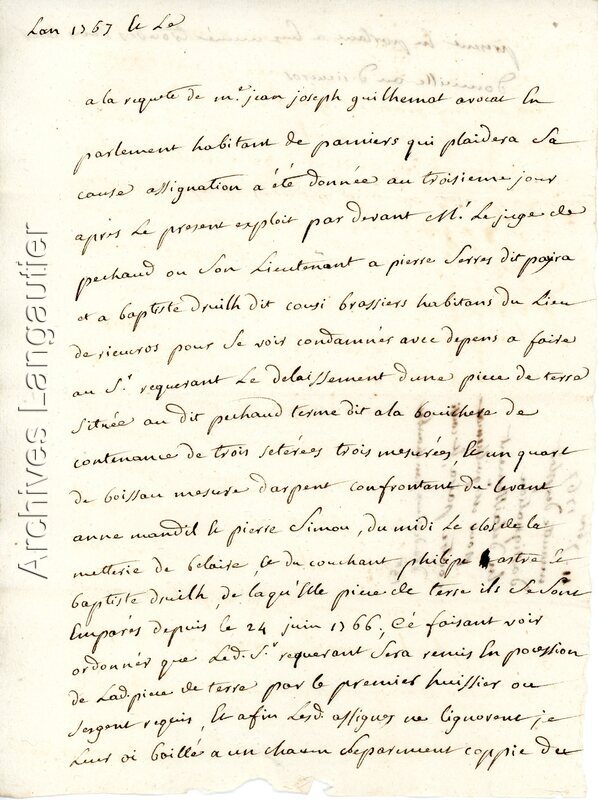 Lan 1767 et Le
a la requete de me. jean joseph guilhemat avocat En
parlement habitant de pamiers qui plaidera Sa
cause assignation a été donnée au troisieme jour
après Le present exploit par devant Mr. Le juge de
pechaud ou Son Lieutenant a pierre Serres dit payra
et a baptiste druilh dit cousi brassiers habitans du Lieu
de rieucros pour Se voir condamnés avec depens a faire
au Sr. requerant Le delaissement dune piece de terra
Située au dit pechaud terme dit ala bouchere de
contenance de trois seterées trois mesurées, Et un quart
de boissau mesure darpent confrontant du levant
anne mandil Et pierre Simou, du midi Le clos de la
metterie de belaire Et du couchant philipe astre Et
baptiste druilh, de laqu'Elle piece de terre ils Se Sont
Emparés depuis le 24 juin 1766, Cé faisant voir
ordonnér que Led. Sr. requerant Sera remis En pocession
de Lad. piece de terre par le premier huissier ou
Sergent requis, Et afin Lesd. assignes ne Lignorent je
Leur ai baillé a un chacun separement coppie du
Archives Langautier